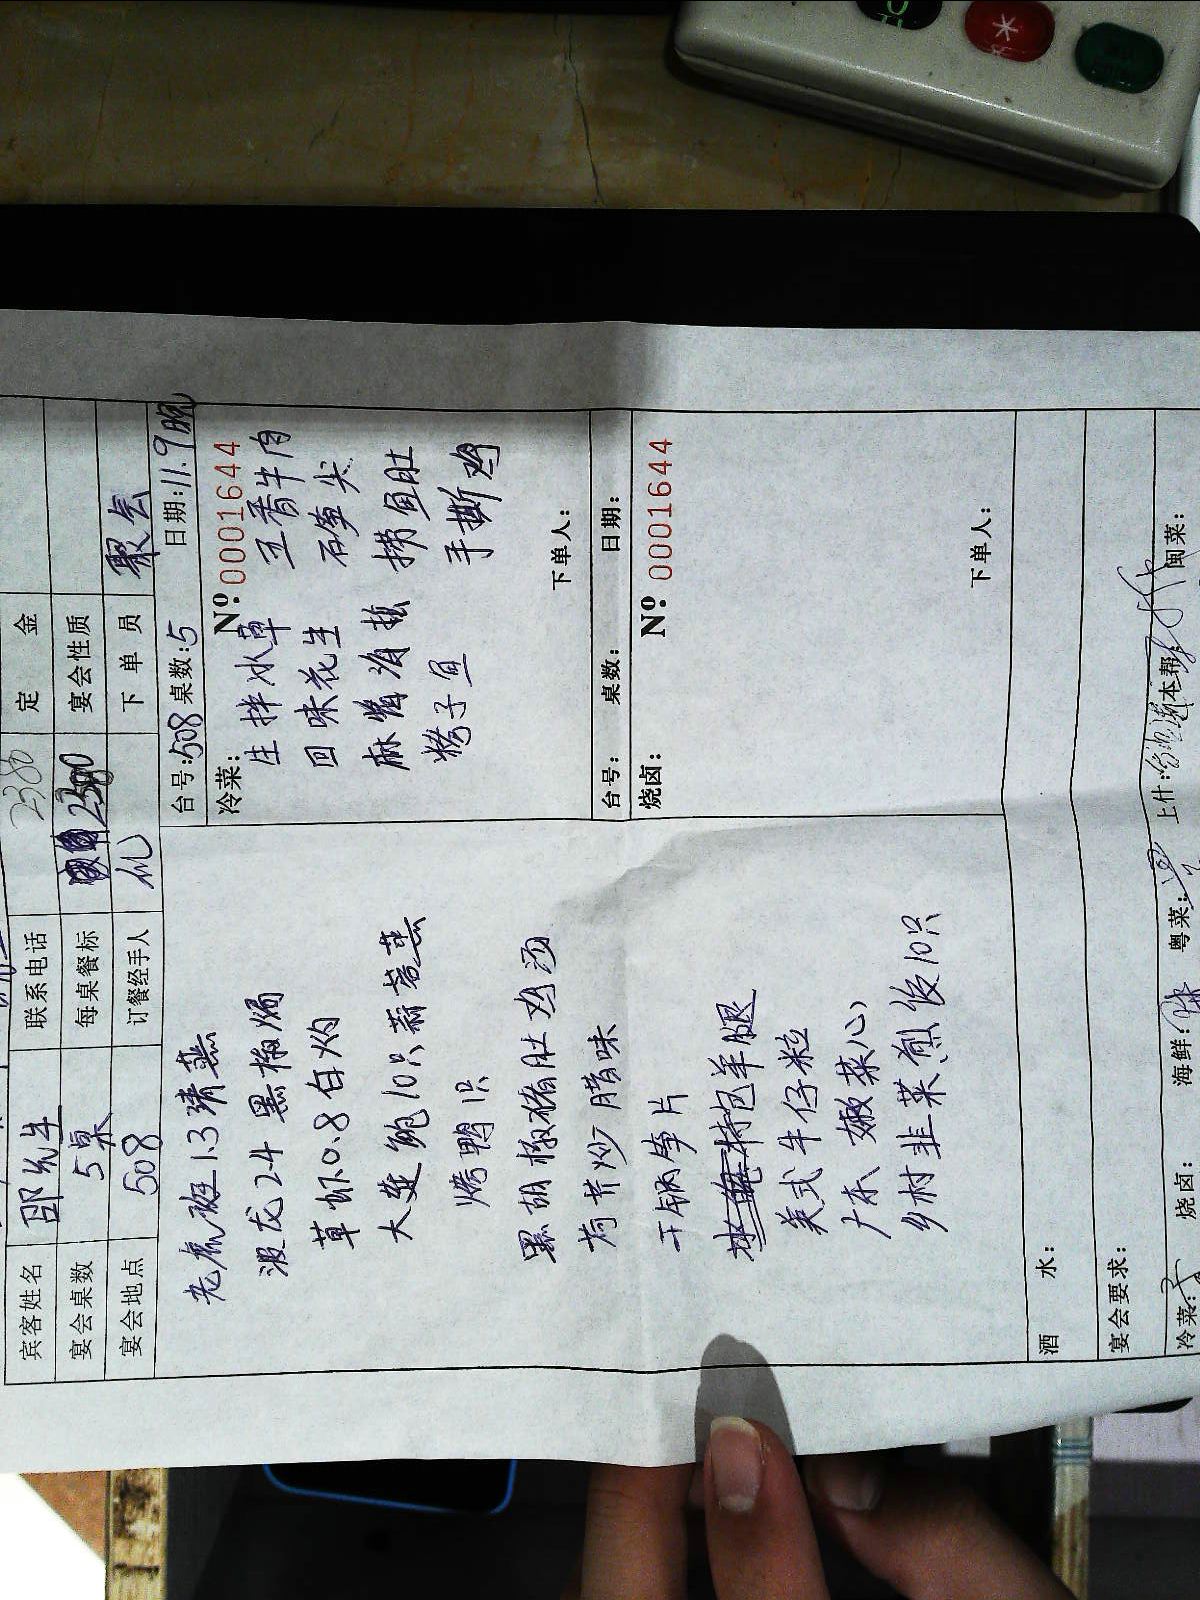 宾客姓名 邵先生 联系电话 2380 定金
宴会桌数 5桌 每桌餐标 2380 宴会性质
宴会地点 508 订餐经手人 下单员 聚会
老虎斑1.3清蒸
波龙24黑椒焗
草虾0.8白灼
大连鲍10只蒜蓉蒸
烤鸭1只
黑胡椒猪肚鸡汤
荷芹炒腊味
干锅笋片
特包羊腿
美式牛仔粒
广东嫩菜心
乡村韭菜煎饺10只
台号:508 桌数:5 日期:11.9晚
冷菜: Nº 0001644
生拌冰草 五香牛肉
回味花生 石笋尖
麻酱海蜇 捞鱼肚
烤子鱼 手撕鸡
下单人:
台号: 桌数: 日期:
烧卤: Nº 0001644
下单人:
酒水:
宴会要求:
冷菜: 烧卤: 海鲜: 粤菜: 上什: 本帮: 闽菜: